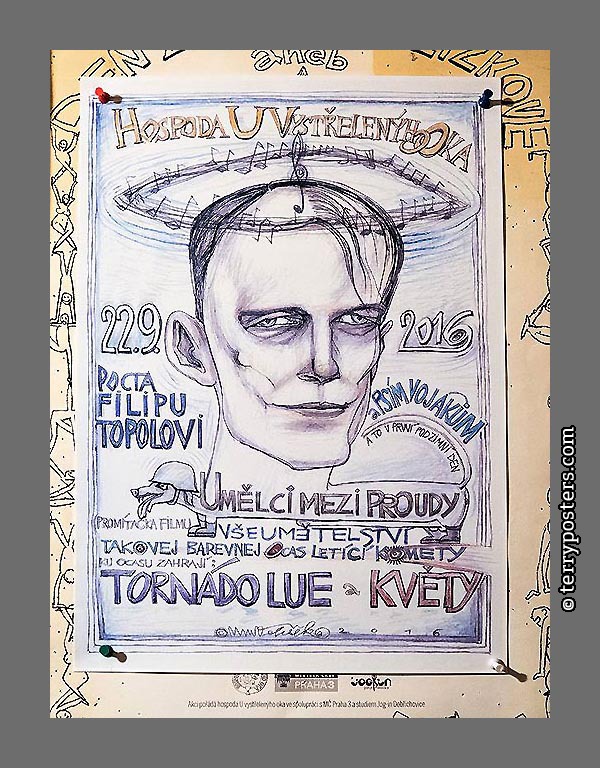 aneb
HOSPODA U VYSTŘELENÝHO OKA
22.9. 2016
POCTA
FILIPU
TOPOLOVI
a PSÍM VOJÁKŮM
A TO V PRVNÍ PODZIMNÍ DEN
UMĚLCI MEZI PROUDY
PROMÍTAČKA FILMU
VŠEUMĚTELSTVÍ
TAKOVEJ BAREVNEJ OCAS LETÍCÍ KOMETY
OCASU ZAHRAJÍ:
TORNÁDO LUE a KVĚTY
2016
PRAHA 3
Akci pořádá hospoda U vystřelenýho oka ve spolupráci s MČ Praha 3 a studiem Jog-in Dobřichovice
© terryposters.com